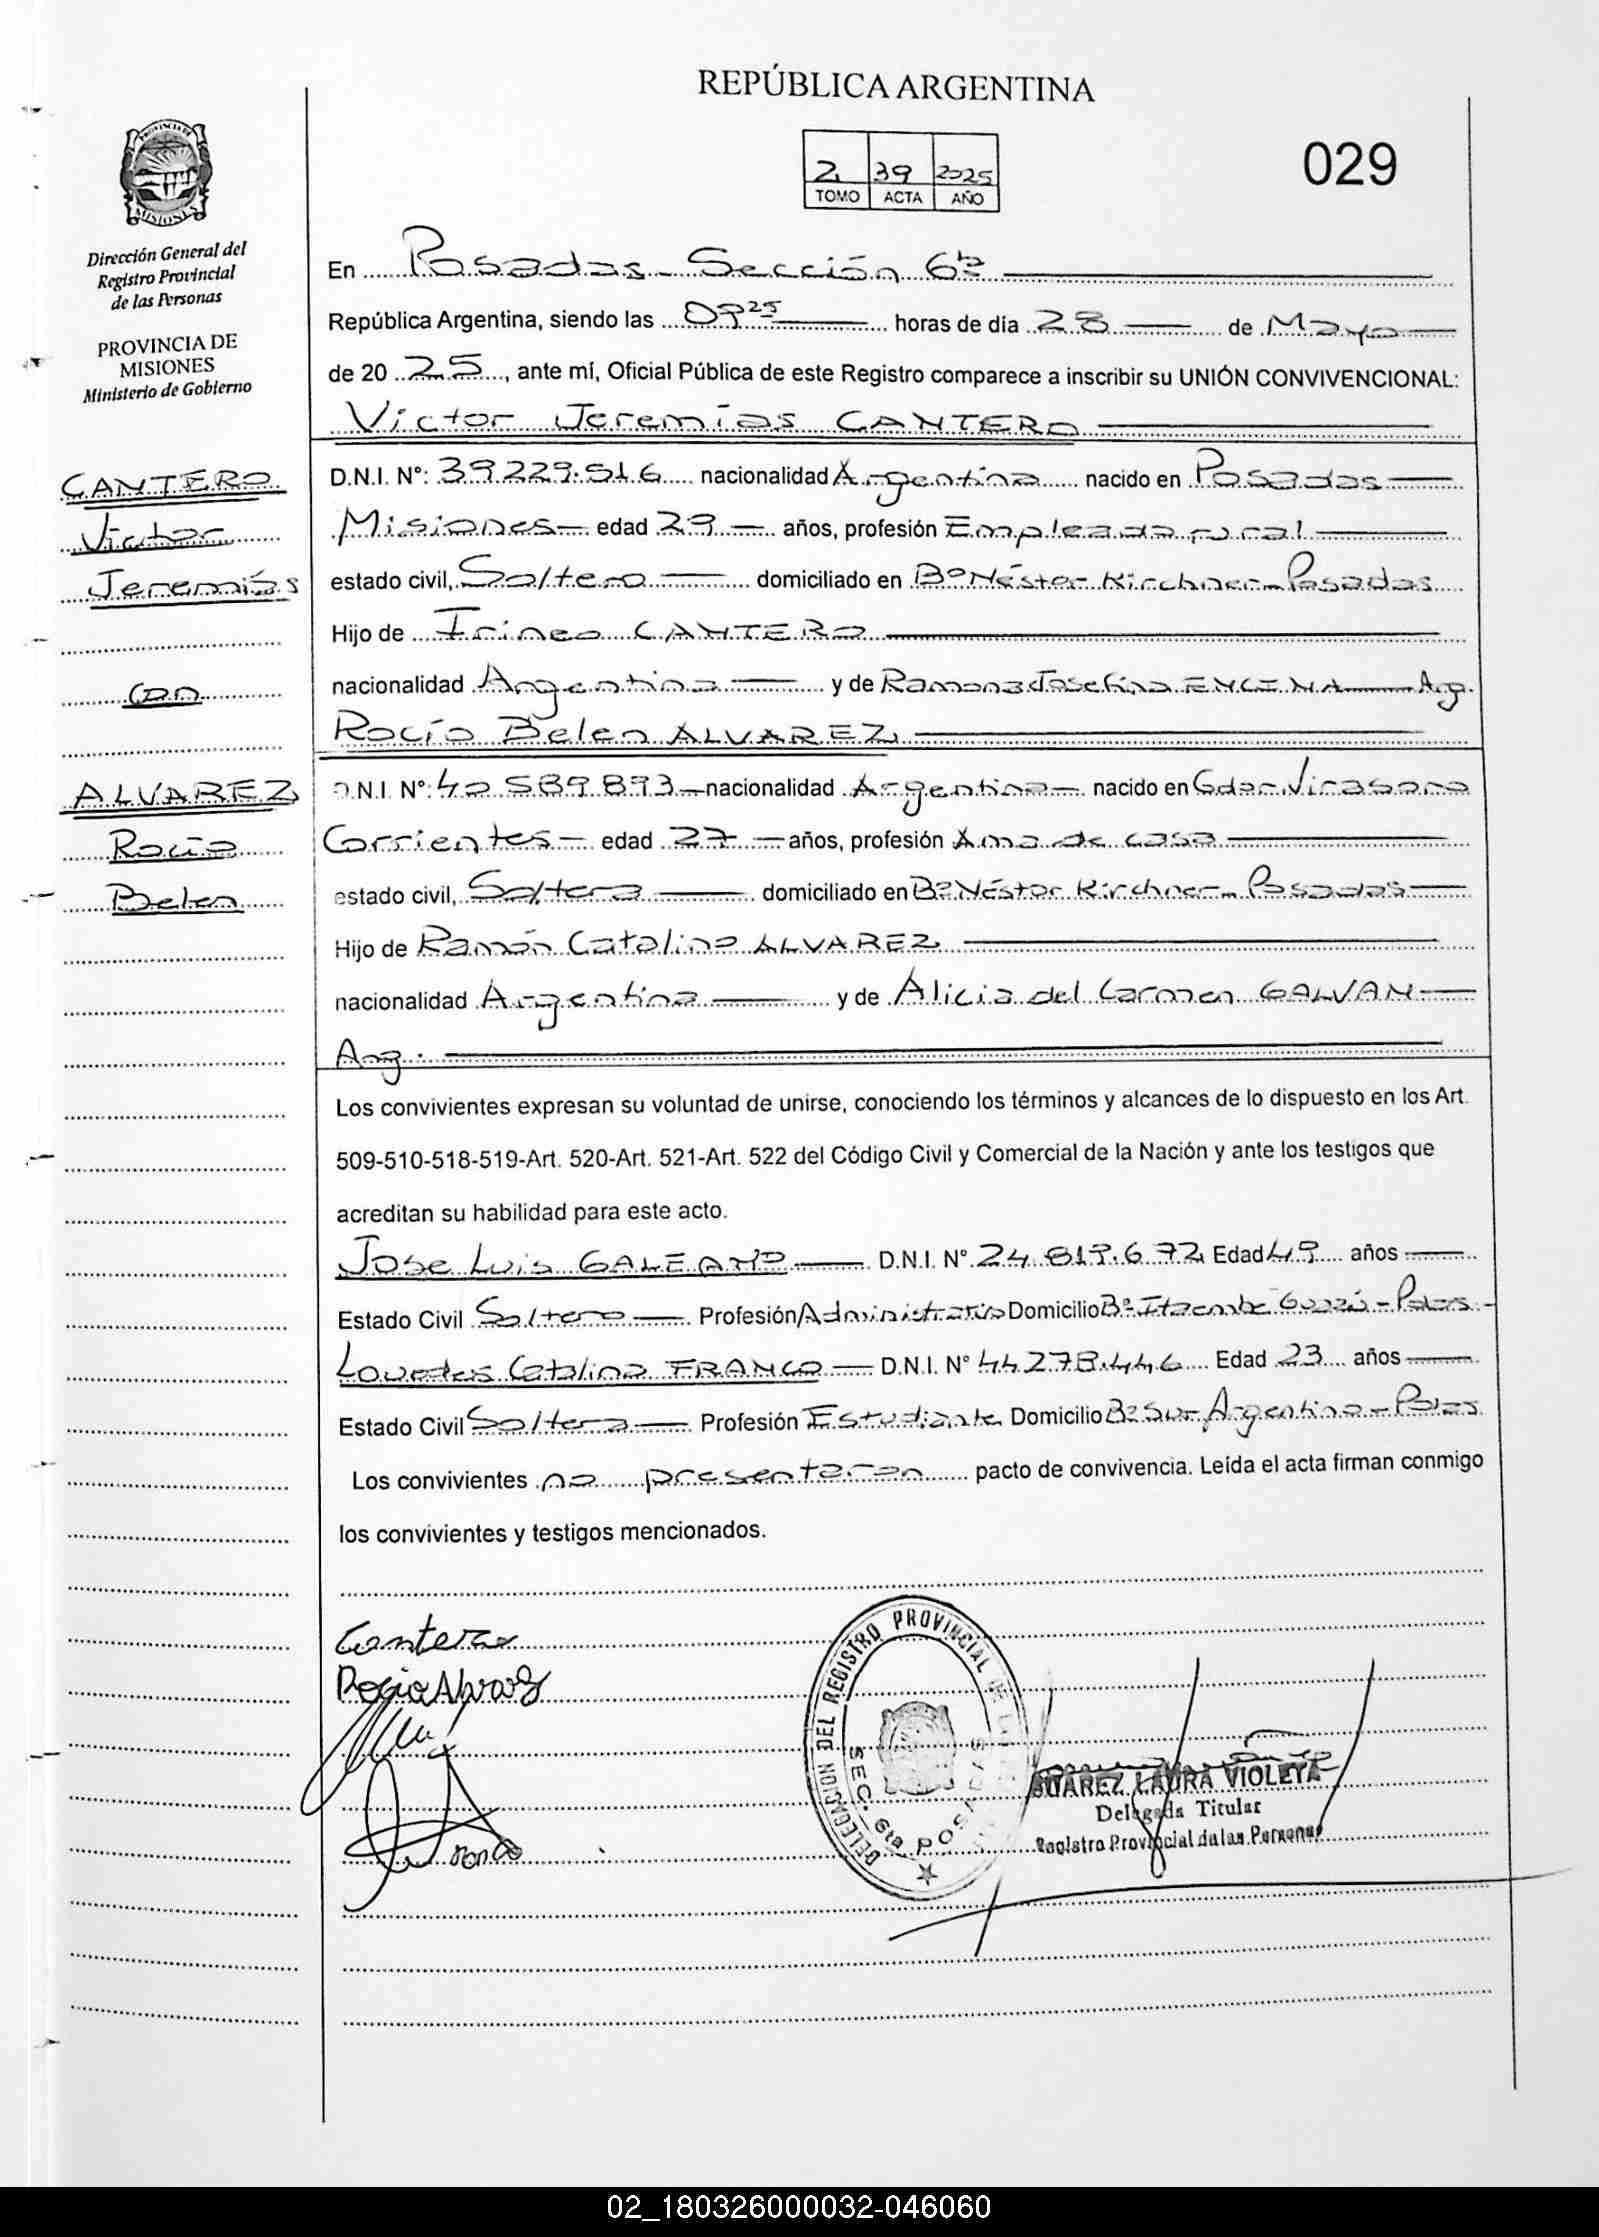 REPÚBLICA ARGENTINA
2 39 2025
TOMO ACTA AÑO
029
PROVINCIA DE
MISIONES
Dirección General del
Registro Provincial
de las Personas
PROVINCIA DE
MISIONES
Ministerio de Gobierno
CANTERO
Victor
Jeremías
Con
ALVAREZ
Rocío
Belen
En Posadas Sección 6ta
República Argentina, siendo las 09 25 horas de día 28 de Mayo
de 20 25, ante mí, Oficial Pública de este Registro comparece a inscribir su UNIÓN CONVIVENCIONAL:
Victor Jeremías CANTERO
D.N.I. Nº: 39.229.516 nacionalidad Argentina nacido en Posadas
Misiones edad 29 años, profesión Empleado rural
estado civil, Soltero domiciliado en Bº Néstor Kirchner Posadas
Hijo de Irineo CANTERO
nacionalidad Argentina y de Ramona Josefina ENCINA Arg.
Rocío Belen ALVAREZ
D.N.I. Nº: 40.589.893 nacionalidad Argentina nacido en Gdor. Virasoro
Corrientes edad 27 años, profesión Ama de casa
estado civil, Soltera domiciliado en Bº Néstor Kirchner Posadas
Hijo de Ramón Catalino ALVAREZ
nacionalidad Argentina y de Alicia del Carmen GALVAN
Arg.
Los convivientes expresan su voluntad de unirse, conociendo los términos y alcances de lo dispuesto en los Art.
509-510-518-519-Art. 520-Art. 521-Art. 522 del Código Civil y Comercial de la Nación y ante los testigos que
acreditan su habilidad para este acto.
Jose Luis GALEANO D.N.I. Nº 24.819.672 Edad 49 años
Estado Civil Soltero Profesión Administrativo Domicilio Bº Itaembé Guazú - Pdas.
Lourdes Catalina FRANCO D.N.I. Nº 44.278.446 Edad 23 años
Estado Civil Soltera Profesión Estudiante Domicilio Bº Sur Argentino - Pdas
Los convivientes no presentaron pacto de convivencia. Leída el acta firman conmigo
los convivientes y testigos mencionados.
Cantero
Rocio Alvarez
DELEGACION DEL REGISTRO PROVINCIAL DE LAS
SEC. 6ta POSADAS
SUAREZ LAURA VIOLETA
Delegada Titular
Registro Provincial de las Personas
02_180326000032-046060